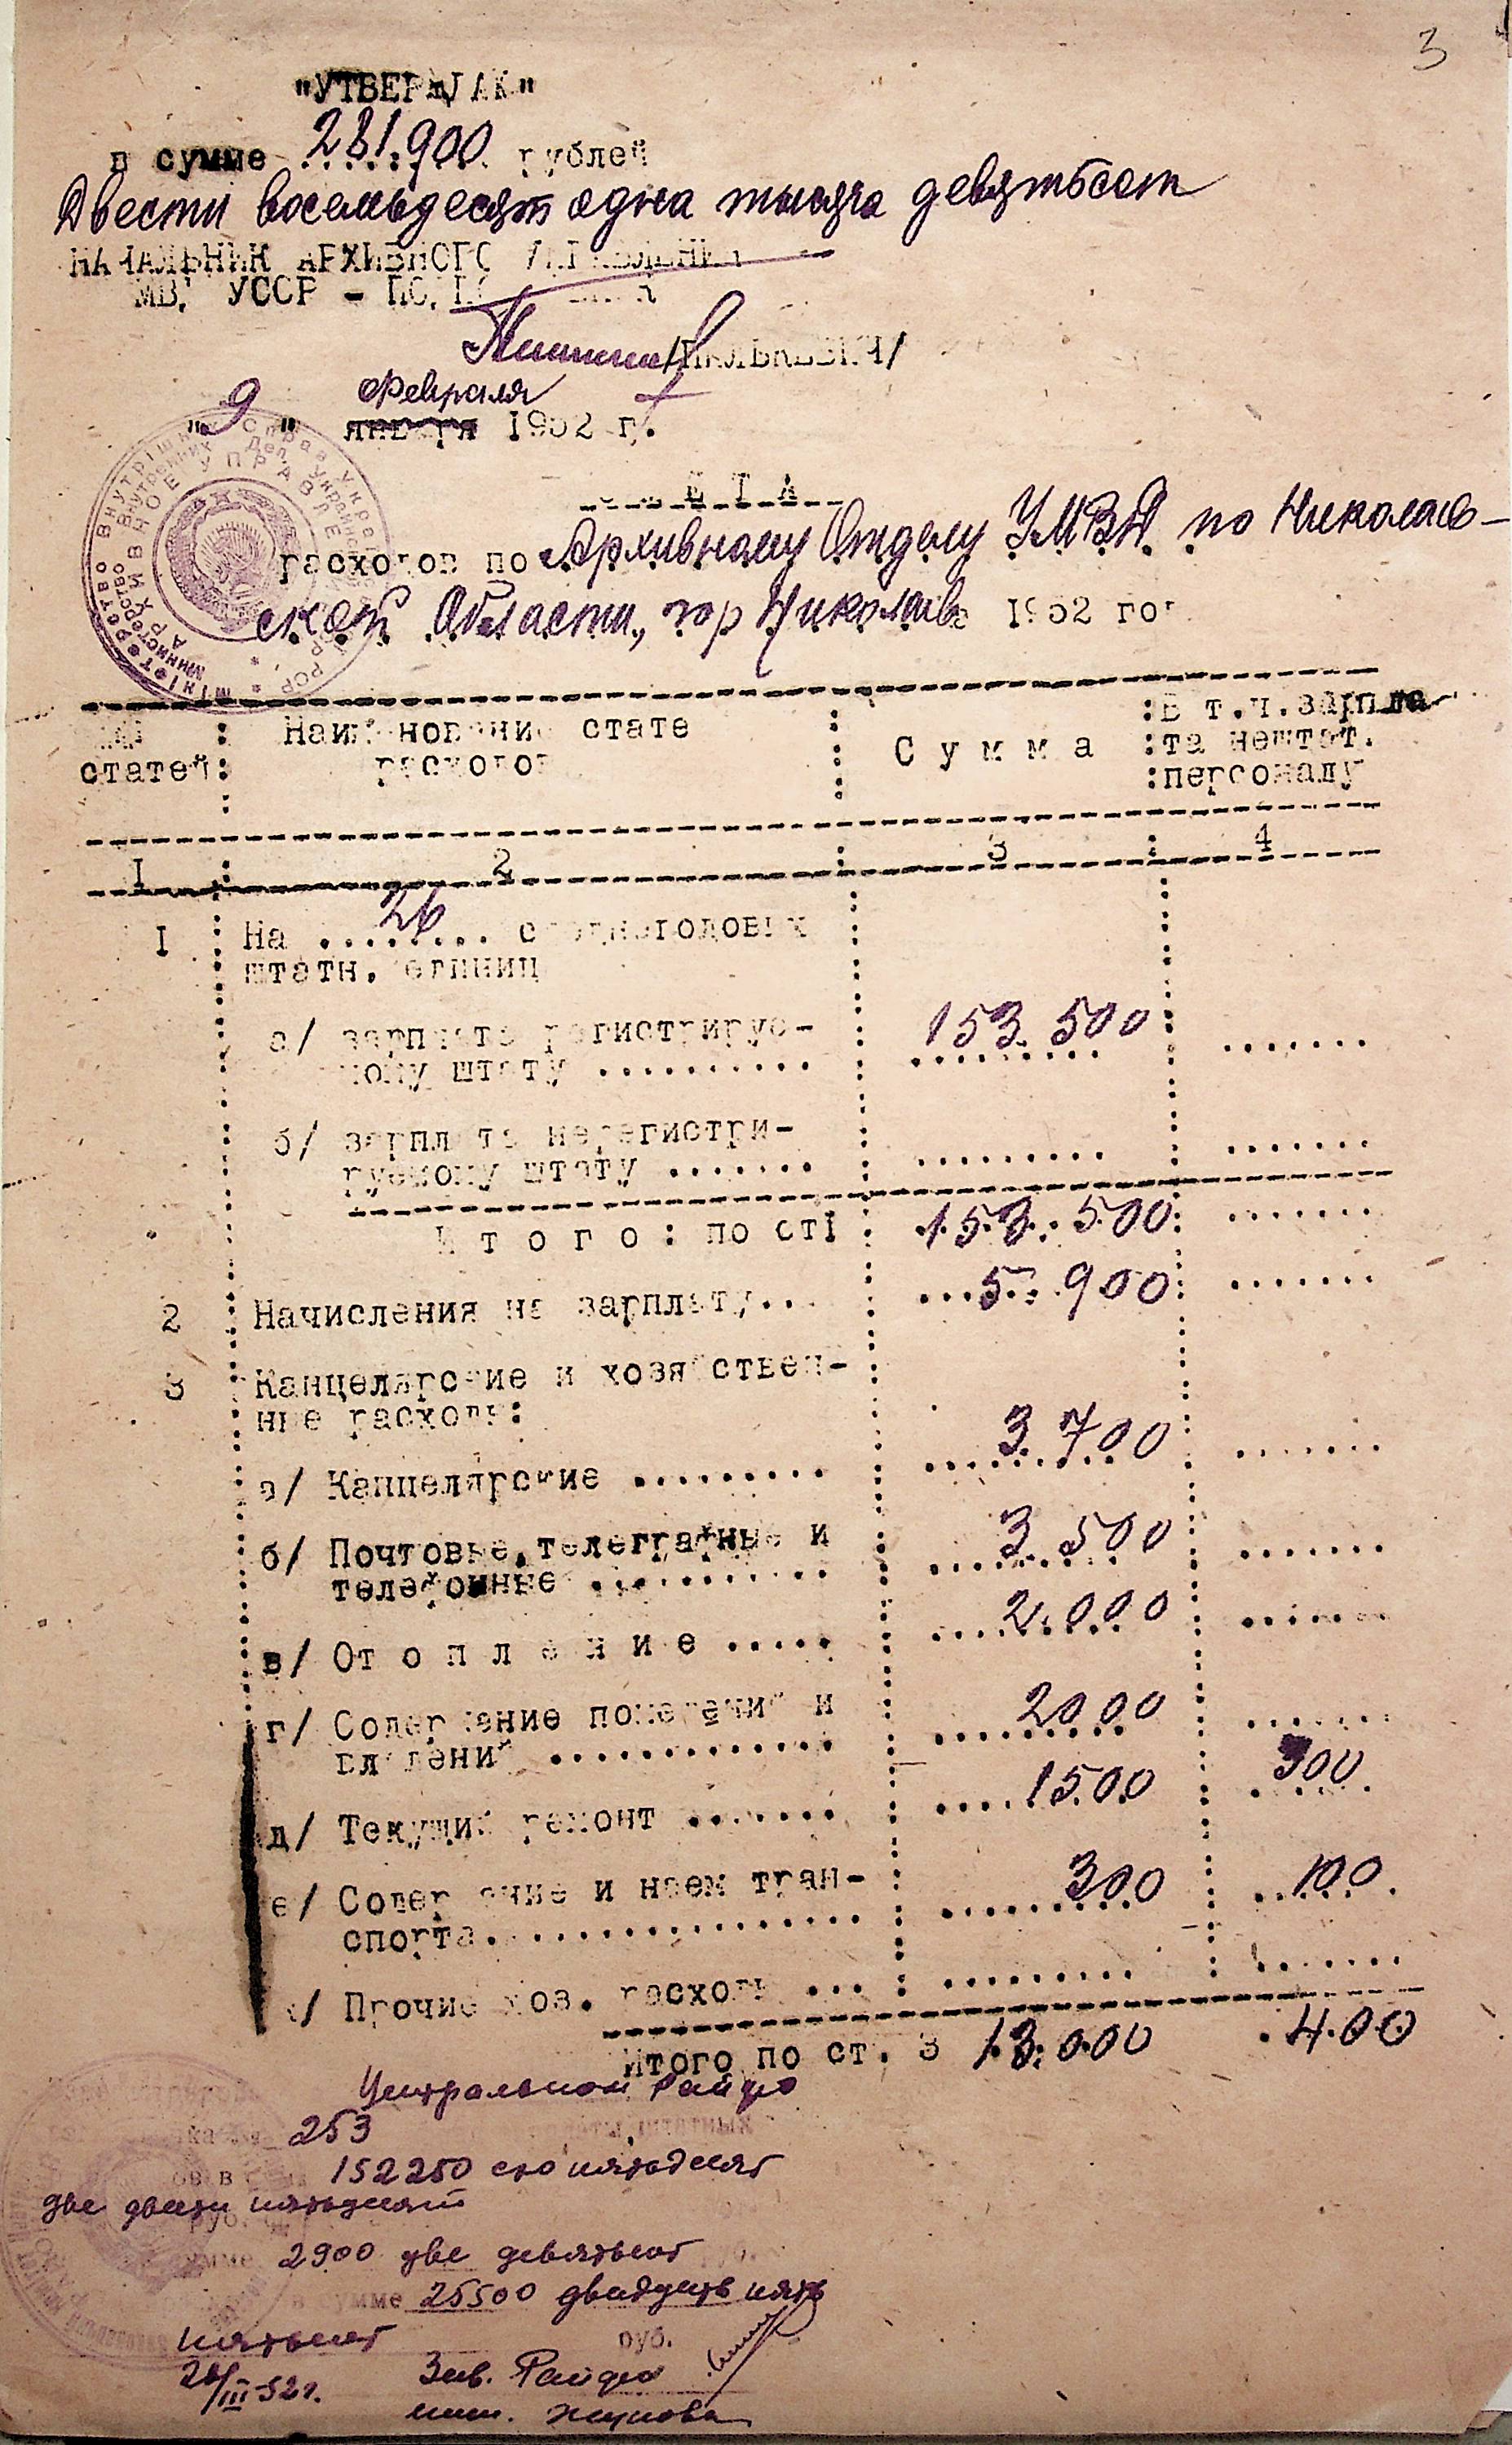 3
"УТВЕРЖДАЮ"
в сумме 281.900 рублей
Двести восемьдесят одна тысяча девятьсот
НАЧАЛЬНИК АРХИВНОГО УПРАВЛЕНИЯ
МВД УССР -
/ПИЛЬКЕВИЧ/
"9" февраля
января 1952 г.
СМЕТА
расходов по Архивному Отделу УМВД по Николаев-
ской Области, гор Николаев 1952 год
статей : Наименование статей : Сумма : В т.ч. зарпла-
расходов : та нештат.
: персоналу
I : 2 : 3 : 4
I : На ...26... среднегодовых
штатн. единиц
а/ зарплата регистрируе-
мому штату .......... 153.500 .......
б/ зарплата нерегистри-
руемому штату ....... ......... .......
Итого: по стI 153.500 .......
2 Начисления на зарплату... 5.900 .......
3 Канцелярские и хозяйствен-
ные расходы:
а/ Канцелярские ......... 3.700 .......
б/ Почтовые, телеграфные и
телефонные ........... 3.500 .......
в/ Отопление ..... 2.000 .......
г/ Содержание помещений и
владений ............. 2000 .......
д/ Текущий ремонт ....... 1500 300
е/ Содержание и наем тран-
спорта................ 300 100
ж/ Прочие хоз. расходы ... ......... .......
Итого по ст. 3 13.000 400
Центральном Райфо
253 штатных
в 152250 сто пятьдесят
две двести пятьдесят
руб.
сумме 2900 две девятьсот руб.
в сумме 25500 двадцать пять
пятьсот руб.
26/III-52г. Зав. Райфо
инсп.